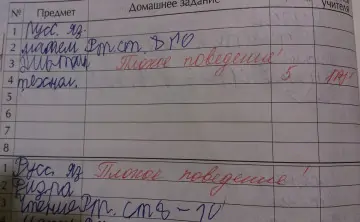 № Предмет Домашнее задание учителя
1 Русс. яз.
2 матем Рт. ст.
3 Плохое поведение!
4 технол. 5
5
6
7
8
1 Русс. яз Плохое поведение!
2 Физра
3 чтение Рт. ст 8-10